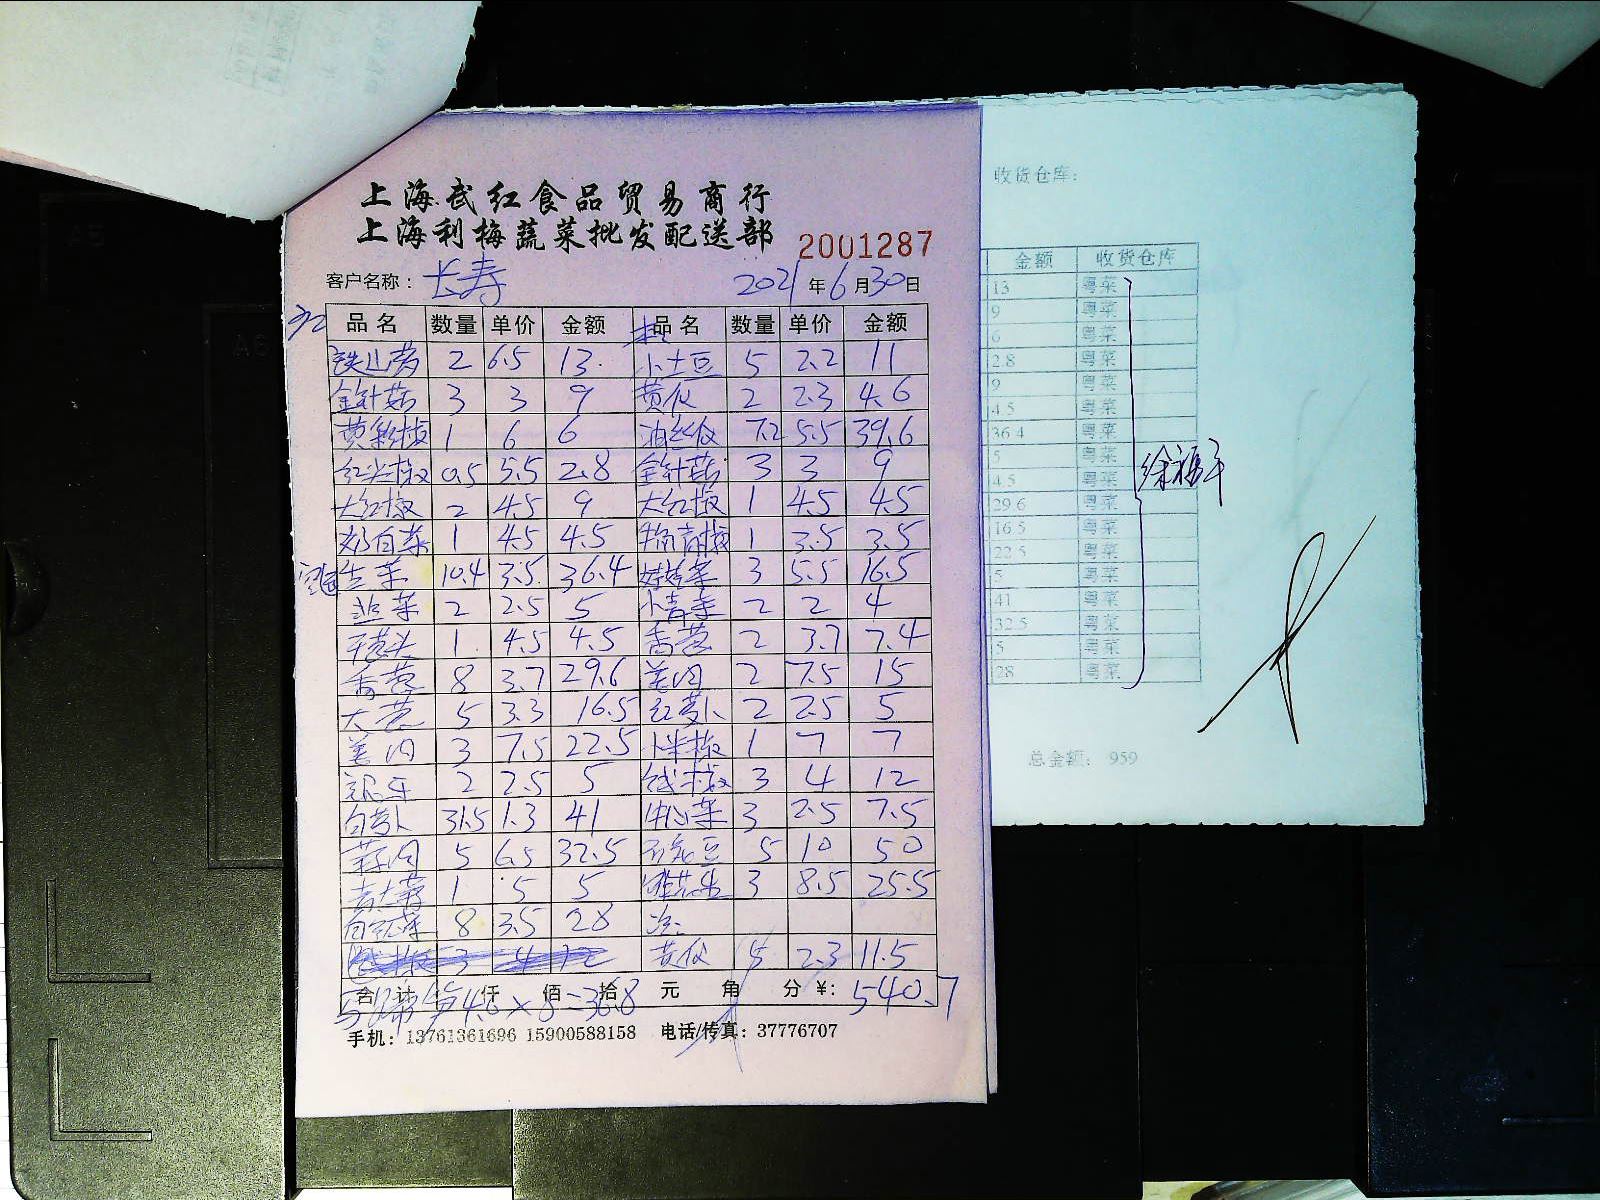 上海武红食品贸易商行
上海利梅蔬菜批发配送部
2001287
客户名称：长寿 2021年6月30日
品名 数量 单价 金额 品名 数量 单价 金额
铁山药 2 6.5 13. 小土豆 5 2.2 11
金针菇 3 3 9 黄仪 2 2.3 4.6
黄彩椒 1 6 6 油丝仪 7.2 5.5 39.6
红尖椒 0.5 5.5 2.8 金针菇 3 3 9
大红椒 2 4.5 9 大红椒 1 4.5 4.5
奶白菜 1 4.5 4.5 青椒 1 3.5 3.5
生菜 10.4 3.5 36.4 娃娃菜 3 5.5 16.5
韭菜 2 2.5 5 小青菜 2 2 4
干葱头 1 4.5 4.5 香葱 2 3.7 7.4
香葱 8 3.7 29.6 姜肉 2 7.5 15
大葱 5 3.3 16.5 红萝卜 2 2.5 5
姜肉 3 7.5 22.5 小米椒 1 7 7
银牙 2 2.5 5 线椒 3 4 12
白萝卜 31.5 1.3 41 牛心菜 3 2.5 7.5
蒜肉 5 6.5 32.5 豆 5 10 50
青大蒜 1 5 5 3 8.5 25.5
白菜 8 3.5 28
3 4 12 黄仪 5 2.3 11.5
合计 仟 佰 拾 元 角 分 ¥: 540.7
4.6×8=36.8
手机：13761361696 15900588158 电话/传真：37776707
收货仓库:
金额 收货仓库
13 粤菜
9 粤菜
6 粤菜
2.8 粤菜
9 粤菜
4.5 粤菜
36.4 粤菜
5 粤菜
4.5 粤菜
29.6 粤菜
16.5 粤菜
22.5 粤菜
5 粤菜
41 粤菜
32.5 粤菜
5 粤菜
28 粤菜
总金额: 959